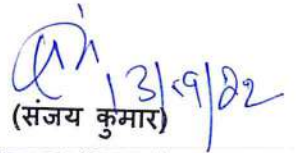 13/9/22
(संजय कुमार)